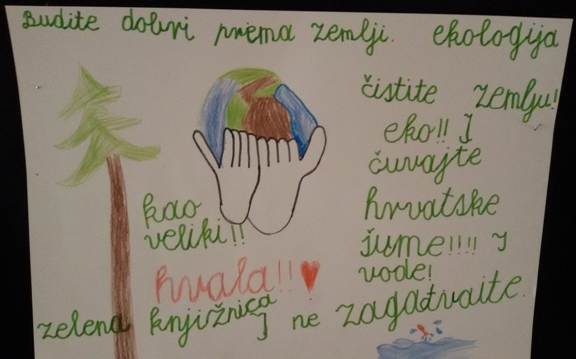 Budite dobri prema zemlji. ekologija
čistite zemlju!
eko!! J
čuvajte
hrvatske
šume!!!! J
vode!
kao
veliki!!
hvala!!
zelena knjižnica J ne zagađvaite.